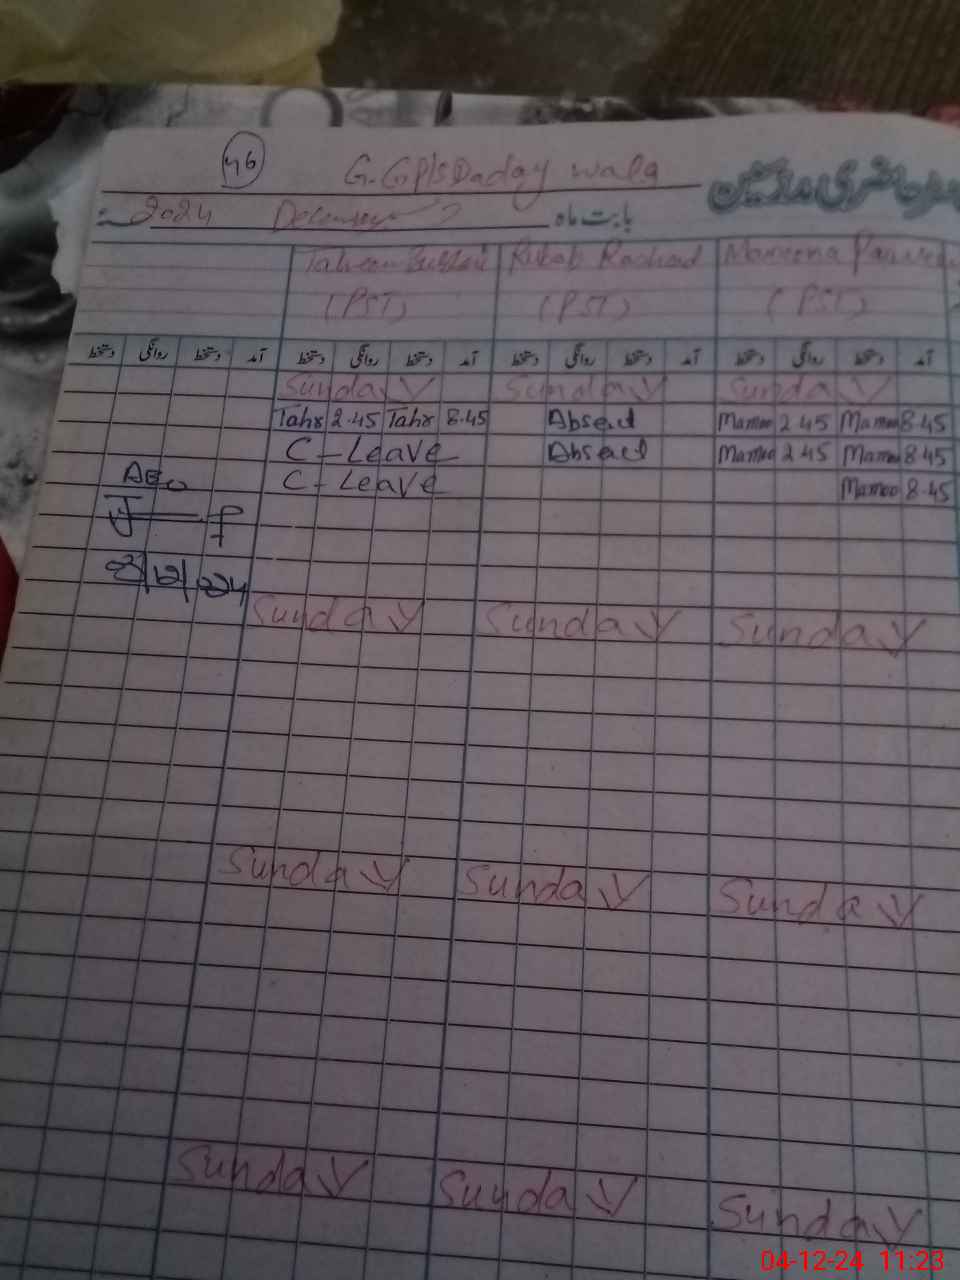 46
G.GP/S Dadgy wala
2024 December بابت ماه
Rubab Rashad
(PST) (PST) (PST)
آمد دستخط روانگی دستخط آمد دستخط روانگی دستخط آمد دستخط روانگی دستخط آمد دستخط روانگی دستخط
Sunday Sunday Sunday
Tahr 2.45 Tahr 8.45 Absent Mamoo 2.45 Mamoo 8.45
C-Leave Absent Mamoo 2.45 Mamoo 8.45
AEO C-Leave Mamoo 8.45
3/12/2024
Sunday Sunday Sunday
Sunday Sunday Sunday
Sunday Sunday Sunday
04-12-24 11:23